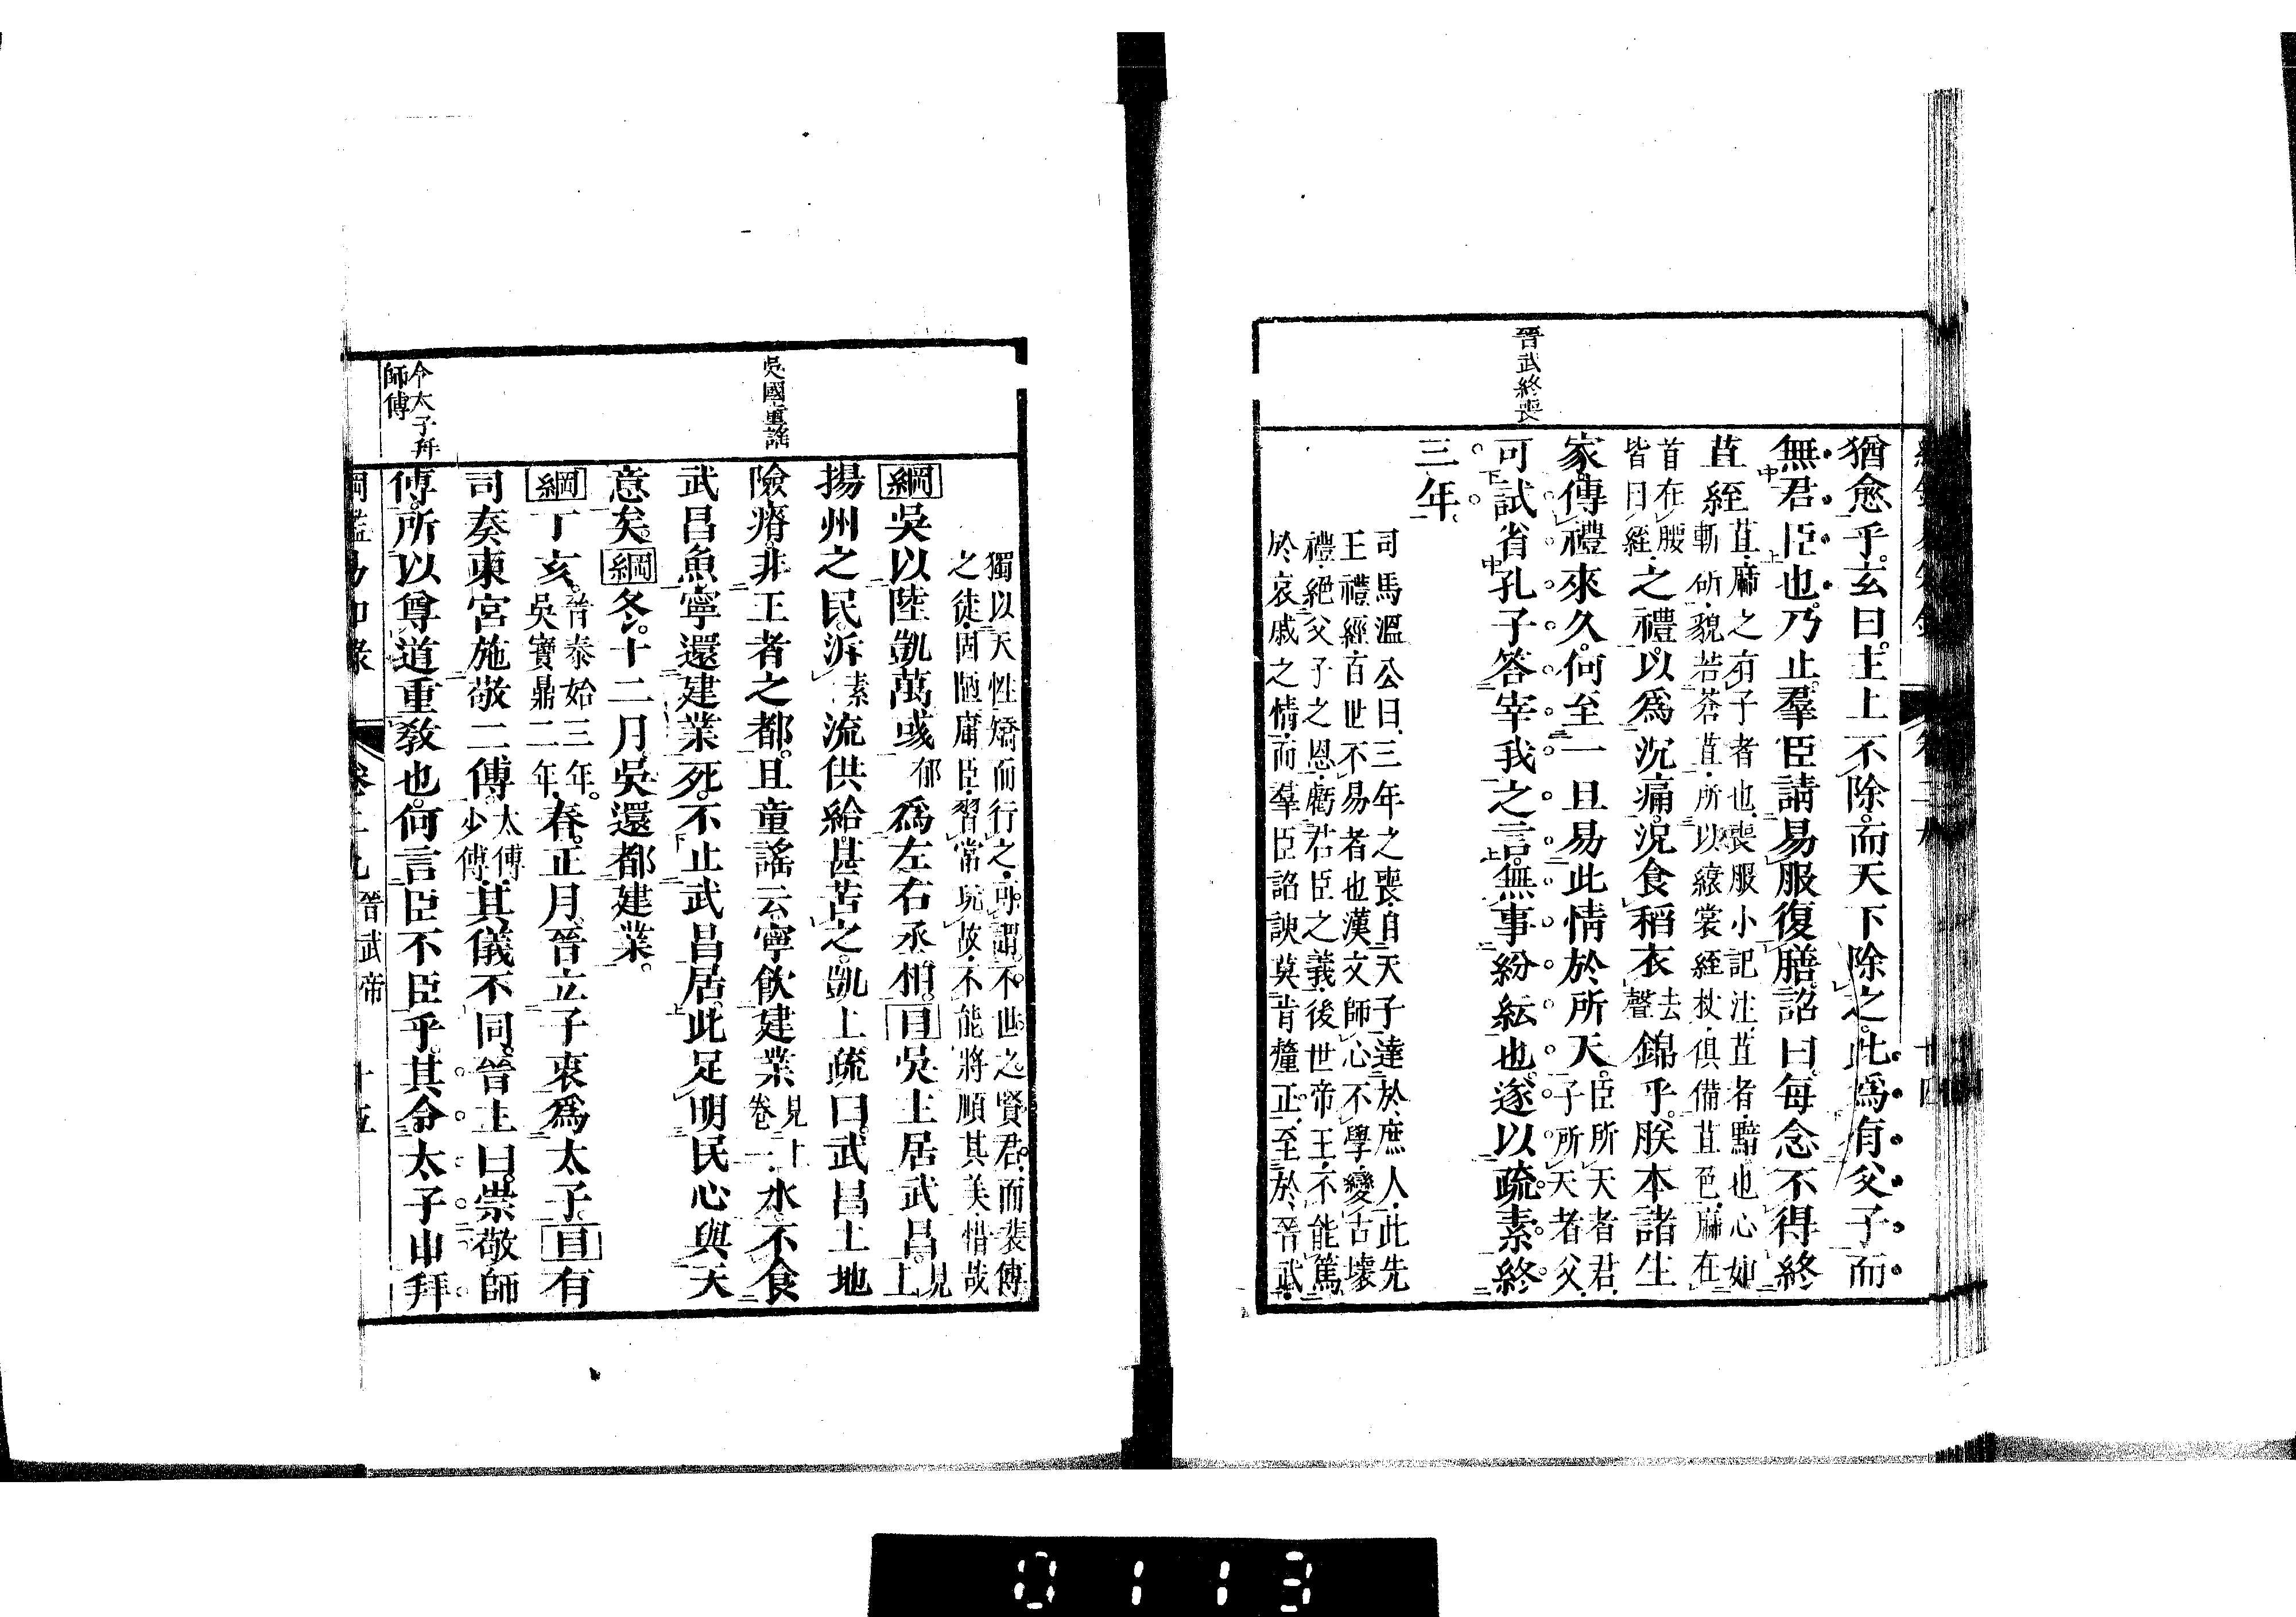 晉武終喪
猶愈乎。玄曰。主上不除。而天下除之。此爲有父子而
無君臣也。乃止。羣臣請易服復膳。詔曰。每念不得終
苴絰苴。麻之有子者也。喪服小記注。苴者。黯也。心如斬斫。貌若蒼苴。所以縗裳絰杖。俱備苴色。麻在
首在腰皆曰絰。之禮。以爲沉痛。況食稻衣去聲錦乎。朕本諸生
家。傳禮來久。何至一旦易此情於所天。臣所天者君。子所天者父。
可試省孔子答宰我之言。無事紛紜也。遂以疏素終
三年。
司馬溫公曰。三年之喪。自天子達於庶人。此先
王禮經。百世不易者也。漢文師心不學。變古壞
禮。絕父子之恩。虧君臣之義。後世帝王。不能篤
於哀戚之情。而羣臣諂諛。莫肯釐正。至於晉武。
吳國童謠
令太子拜
師傅
獨以天性矯而行之。可謂不世之賢君。而裴傅
之徒。固陋庸臣。習常玩故。不能將順其美。惜哉
綱吳以陸凱萬彧郁爲左右丞相。目吳主居武昌。見上
揚州之民。泝素流供給。甚苦之。凱上疏曰。武昌土地
險瘠。非王者之都。且童謠云。寧飲建業見十一卷水。不食
武昌魚。寧還建業死。不止武昌居。此足明民心與天
意矣。綱冬。十二月。吳還都建業。
綱丁亥。晉泰始三年。吳寶鼎二年。春。正月。晉立子衷爲太子。目有
司奏東宮施敬二傅。太傅。少傅。其儀不同。晉主曰。崇敬師
傅。所以尊道重教也。何言臣不臣乎。其令太子申拜
晉武帝
0113